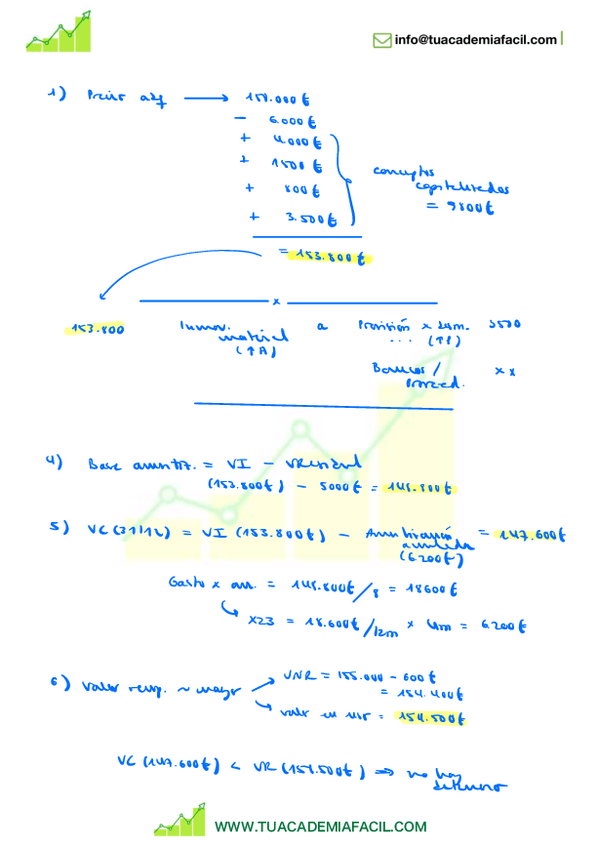 info@tuacademiafacil.com
1) Precio adq → 150.000€
- 6.000€
+ 4.000€
+ 1500€
+ 800€
+ 3.500€
conceptos
capitalizados
= 9800€
= 153.800€
x
153.800 Inmov. material (↑A) a Provisión x desm. ... (↑P) 3500
Bancos / Proveed. x x
4) Base amortiz. = VI - VResidual
(153.800€) - 5000€ = 148.800€
5) VC (31/12) = VI (153.800€) - Amortización acumulada (6200€) = 147.600€
Gasto x am. = 148.800€/8 = 18600€
x23 = 18.600€/12m * 4m = 6200€
6) Valor recup. ~ mayor
VNR = 155.000 - 600€
= 154.400€
valor en uso = 154.500€
VC (147.600€) < VR (154.500€) ⇒ no hay
deterioro
WWW.TUACADEMIAFACIL.COM